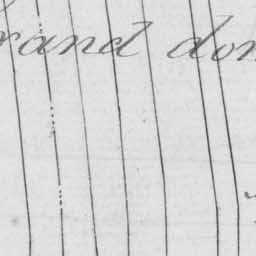 rand don